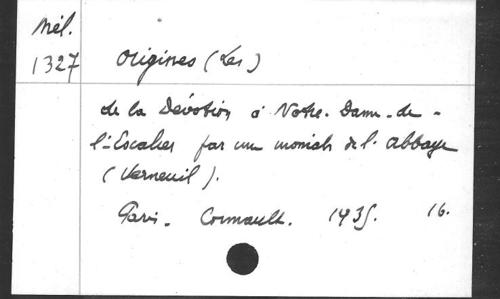 Mél.
1327
Origines (Les)
de la Dévotion à Notre-Dame-de-
l'-Escalier par une moniale de l'abbaye
(Verneuil).
Paris. 1935. 16.